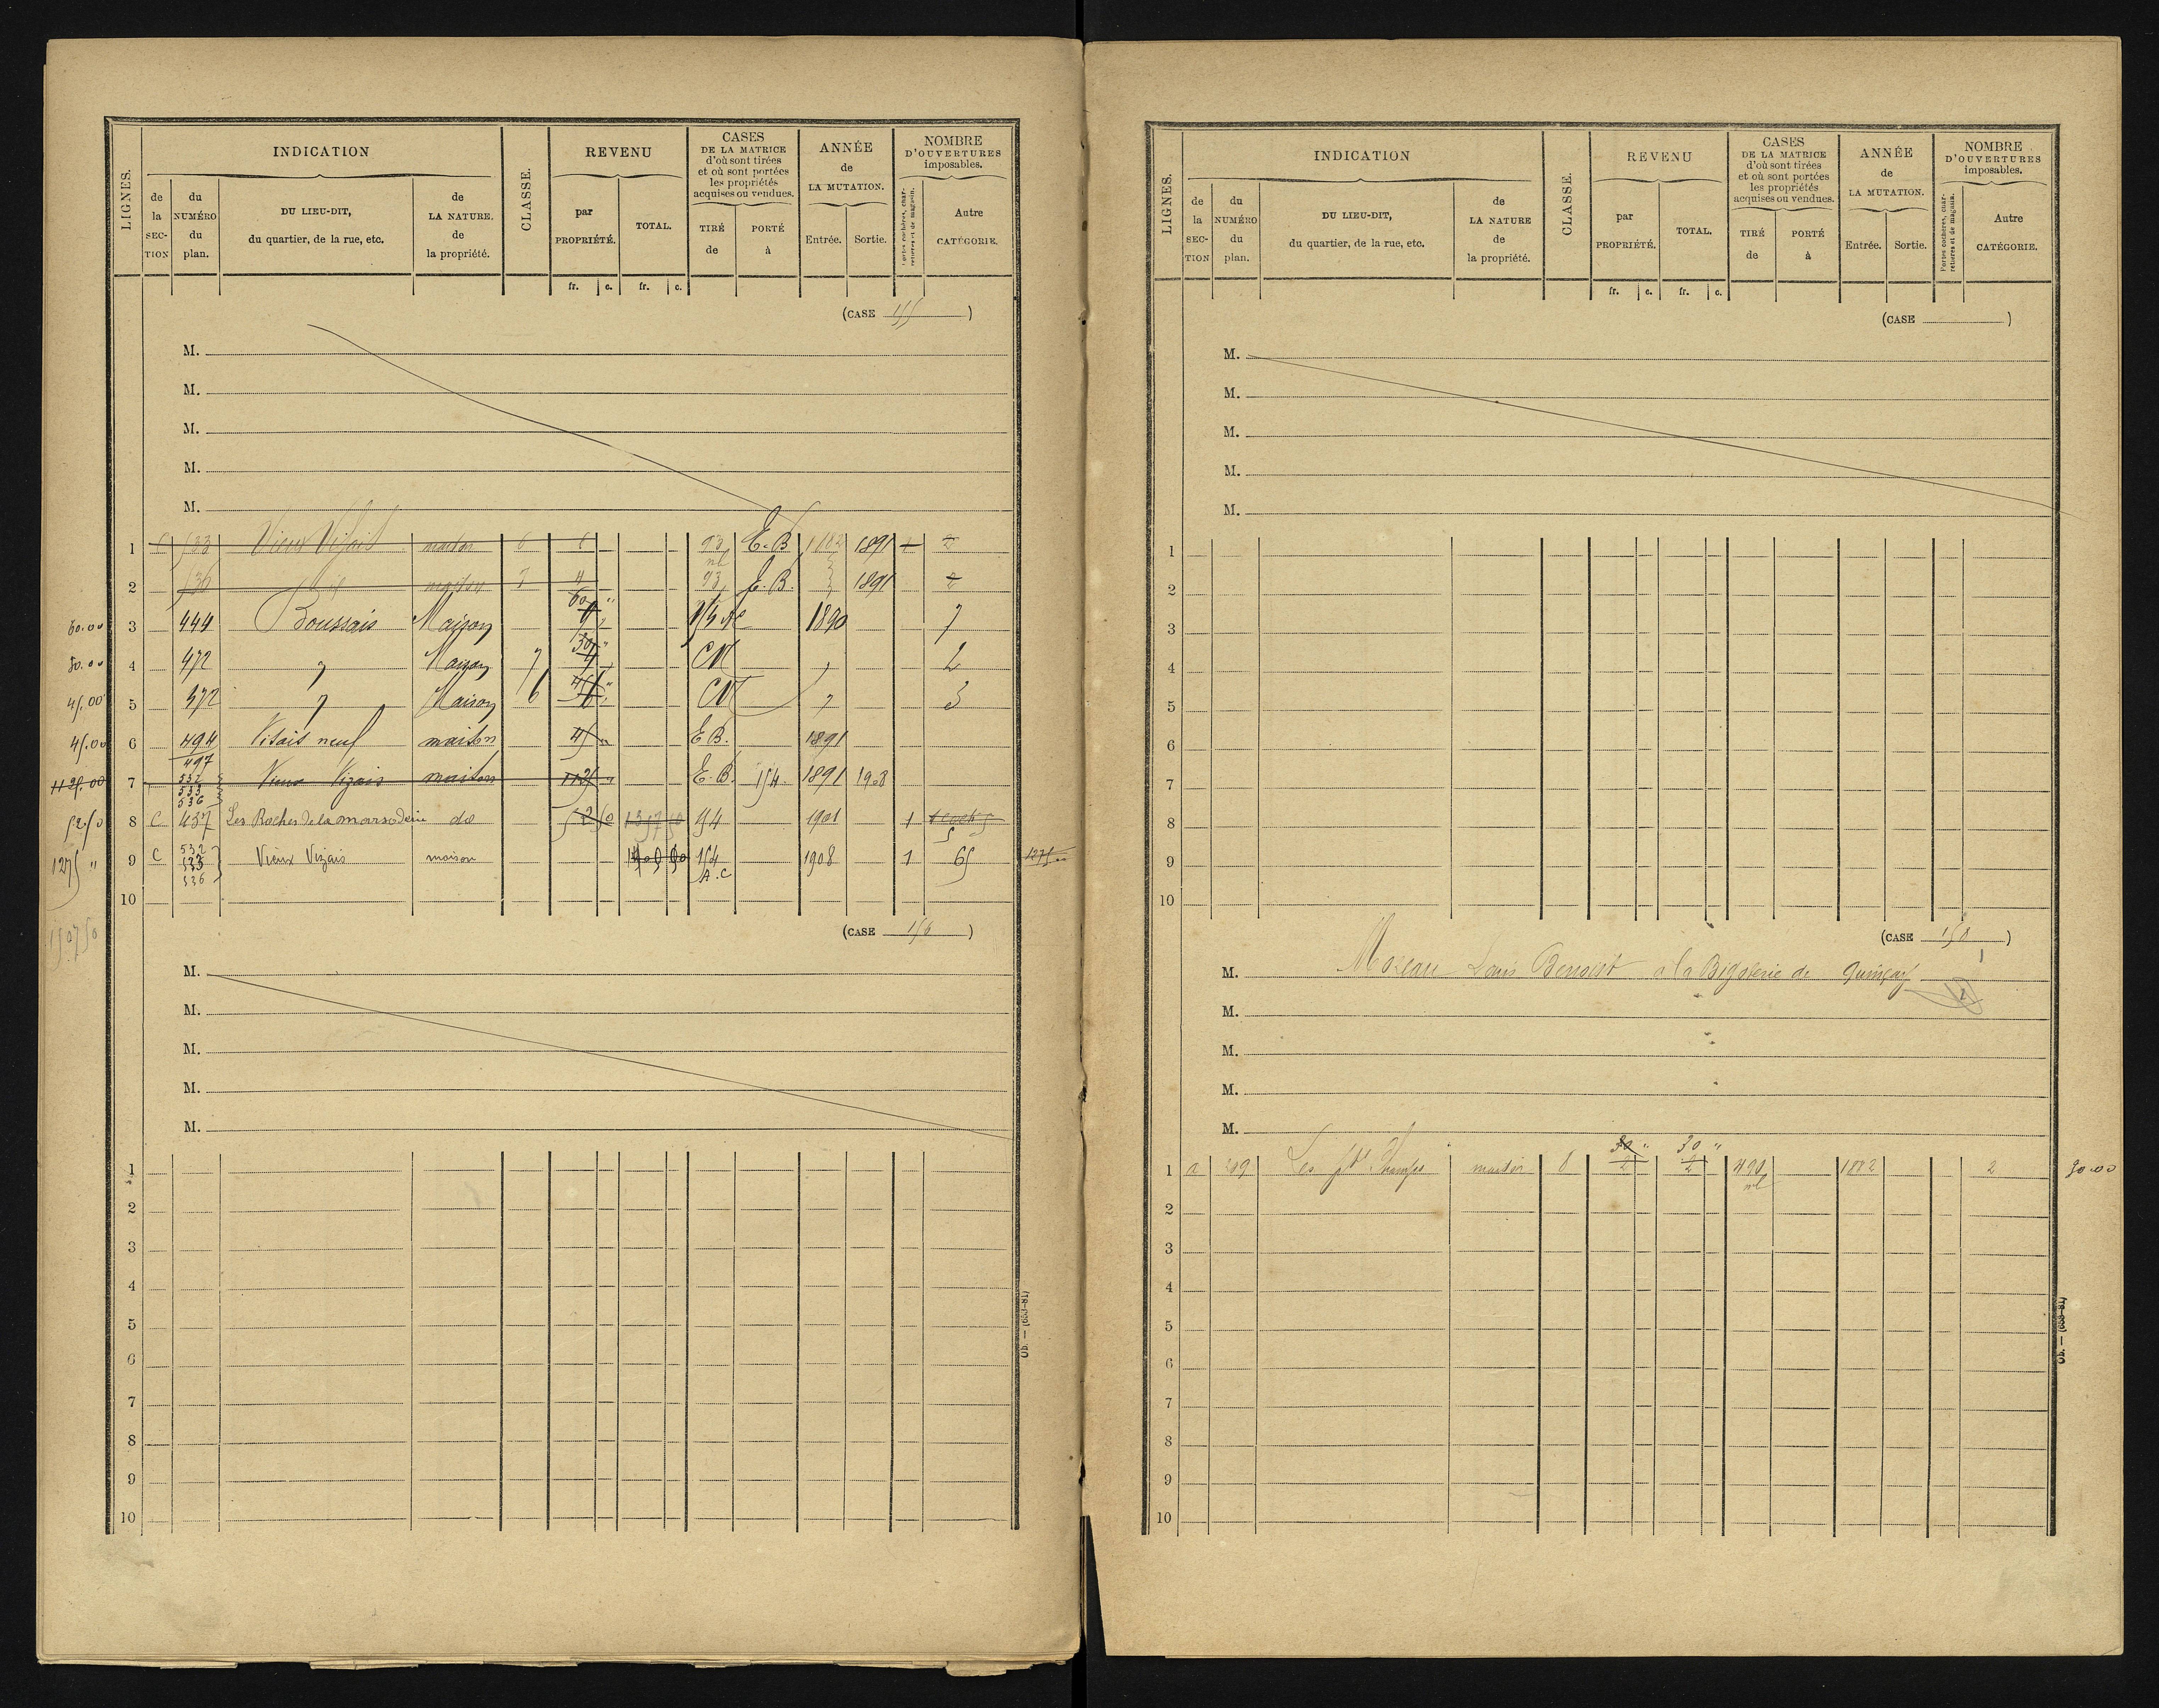 LIGNES.
INDICATION
de la SEC-TION
du NUMÉRO du plan.
DU LIEU-DIT, du quartier, de la rue, etc.
de LA NATURE. de la propriété.
CLASSE.
REVENU
par PROPRIÉTÉ.
TOTAL.
CASES DE LA MATRICE d'où sont tirées et où sont portées les propriétés acquises ou vendues.
TIRÉ de
PORTÉ à
ANNÉE de LA MUTATION.
Entrée.
Sortie.
NOMBRE D'OUVERTURES imposables.
Portes cochères, charretières et de magasin.
Autre CATÉGORIE.
fr. c. fr. c.
(CASE 155)
M.
M.
M.
M.
M.
1 C 533 Vieux Visais maison 6 6 93 E.B 1882 1891 1 2
2 536 maison 7 4 93 E.B. 1891 2
60.00 3 444 Boussais Maison 60 " 1890 7
30.00 4 472 " Maison 7 30 " CN " 2
45.00 5 372 " Maison 6 45 " CN " 3
45.00 6 494 Visais neuf maison 45 " E B. 1891
1125.00 7 497 532 533 536 Vieux Vizais maison 1125 " E.B. 154 1891 1908
52.50 8 C 437 Les Roches de la do 52 50 1357 50 154 1901 1 5
1275 " 9 C 532 533 536 Vieux Vizais maison 154 A.C 1908 1 65 1275
10
1507 50
(CASE 156)
M.
M.
M.
M.
M.
1
2
3
4
5
6
7
8
9
10
Ob. — (639-81)
LIGNES.
INDICATION
de la SEC-TION
du NUMÉRO du plan.
DU LIEU-DIT, du quartier, de la rue, etc.
de LA NATURE de la propriété.
CLASSE.
REVENU
par PROPRIÉTÉ.
TOTAL.
CASES DE LA MATRICE d'où sont tirées et où sont portées les propriétés acquises ou vendues.
TIRÉ de
PORTÉ à
ANNÉE de LA MUTATION.
Entrée.
Sortie.
NOMBRE D'OUVERTURES imposables.
Portes cochères, charretières et de magasin.
Autre CATÉGORIE.
fr. c. fr. c.
(CASE )
M.
M.
M.
M.
M.
1
2
3
4
5
6
7
8
9
10
(CASE 158)
M. Moreau Louis Benoist à la Bigoterie de Quinçay
M.
M.
M.
M.
1 a 209 Les pts Champs maison 8 30 " 2 30 " 2 490 nl 1882 2 30.00
2
3
4
5
6
7
8
9
10
Ob. — (639-81)